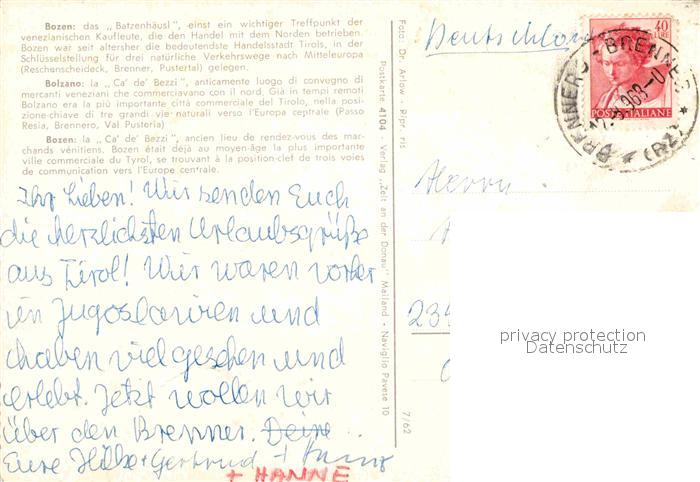 Bozen: das „Batzenhäusl", einst ein wichtiger Treffpunkt der
venezianischen Kaufleute, die den Handel mit dem Norden betrieben.
Bozen war seit altersher die bedeutendste Handelsstadt Tirols, in der
Schlüsselstellung für drei natürliche Verkehrswege nach Mitteleuropa
(Reschenscheideck, Brenner, Pustertal) gelegen.
Bolzano: la „Ca' de' Bezzi", anticamente luogo di convegno di
mercanti veneziani che commerciavano con il nord. Già in tempi remoti
Bolzano era la più importante città commerciale del Tirolo, nella posi-
zione-chiave di tre grandi vie naturali verso l'Europa centrale (Passo
Resia, Brennero, Val Pusteria)
Bozen: la „Ca' de' Bezzi", ancien lieu de rendez-vous des mar-
chands vénitiens. Bozen était déjà au moyen-âge la plus importante
ville commerciale du Tyrol, se trouvant à la position-clef de trois voies
de communication vers l'Europe centrale.
Ihr Lieben! Wir senden Euch
die herzlichsten Urlaubsgrüße
aus Tirol! Wir waren vorher
in Jugoslawien und
haben viel gesehen und
erlebt. Jetzt wollen wir
über den Brenner. Deine
Eure Hilde + Gertrud +
+ HANNE
Foto Dr. Arlow - Ripr. vis
Postkarte 4104 - Verlag „Zelt an der Donau" Mailand - Naviglio Pavese 10
7/62
Deutschland
40
LIRE
POSTE ITALIANE
BRENNERO - BRENNER
(BZ)
Herrn
privacy protection
Datenschutz